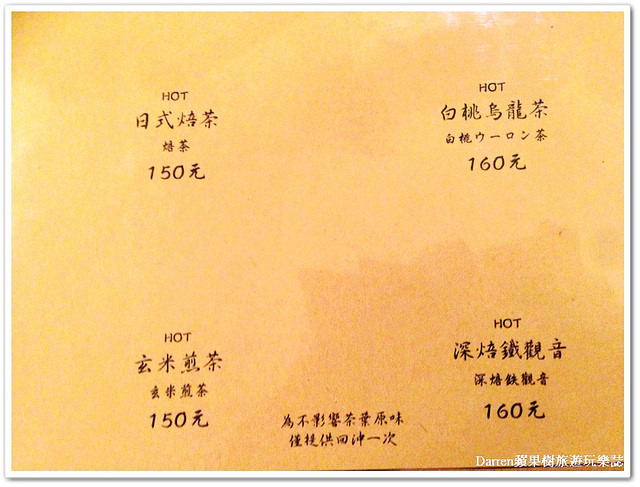 HOT
日式焙茶
焙茶
150元
HOT
白桃烏龍茶
白桃ウーロン茶
160元
HOT
玄米煎茶
玄米煎茶
150元
HOT
深焙鐵觀音
深焙鉄観音
160元
為不影響茶葉原味
僅提供回沖一次
Darren蘋果樹旅遊玩樂誌